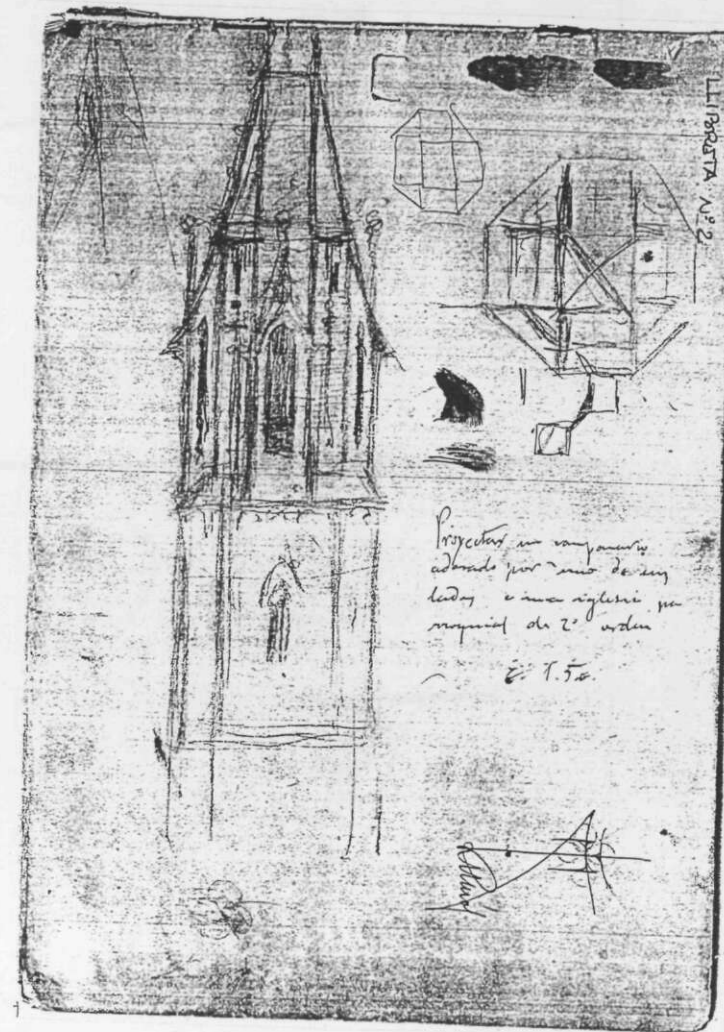 LLIBRETA Nº 2
Proyectar un campanario
adosado por uno de sus
lados a una iglesia pa
rroquial de 2º orden